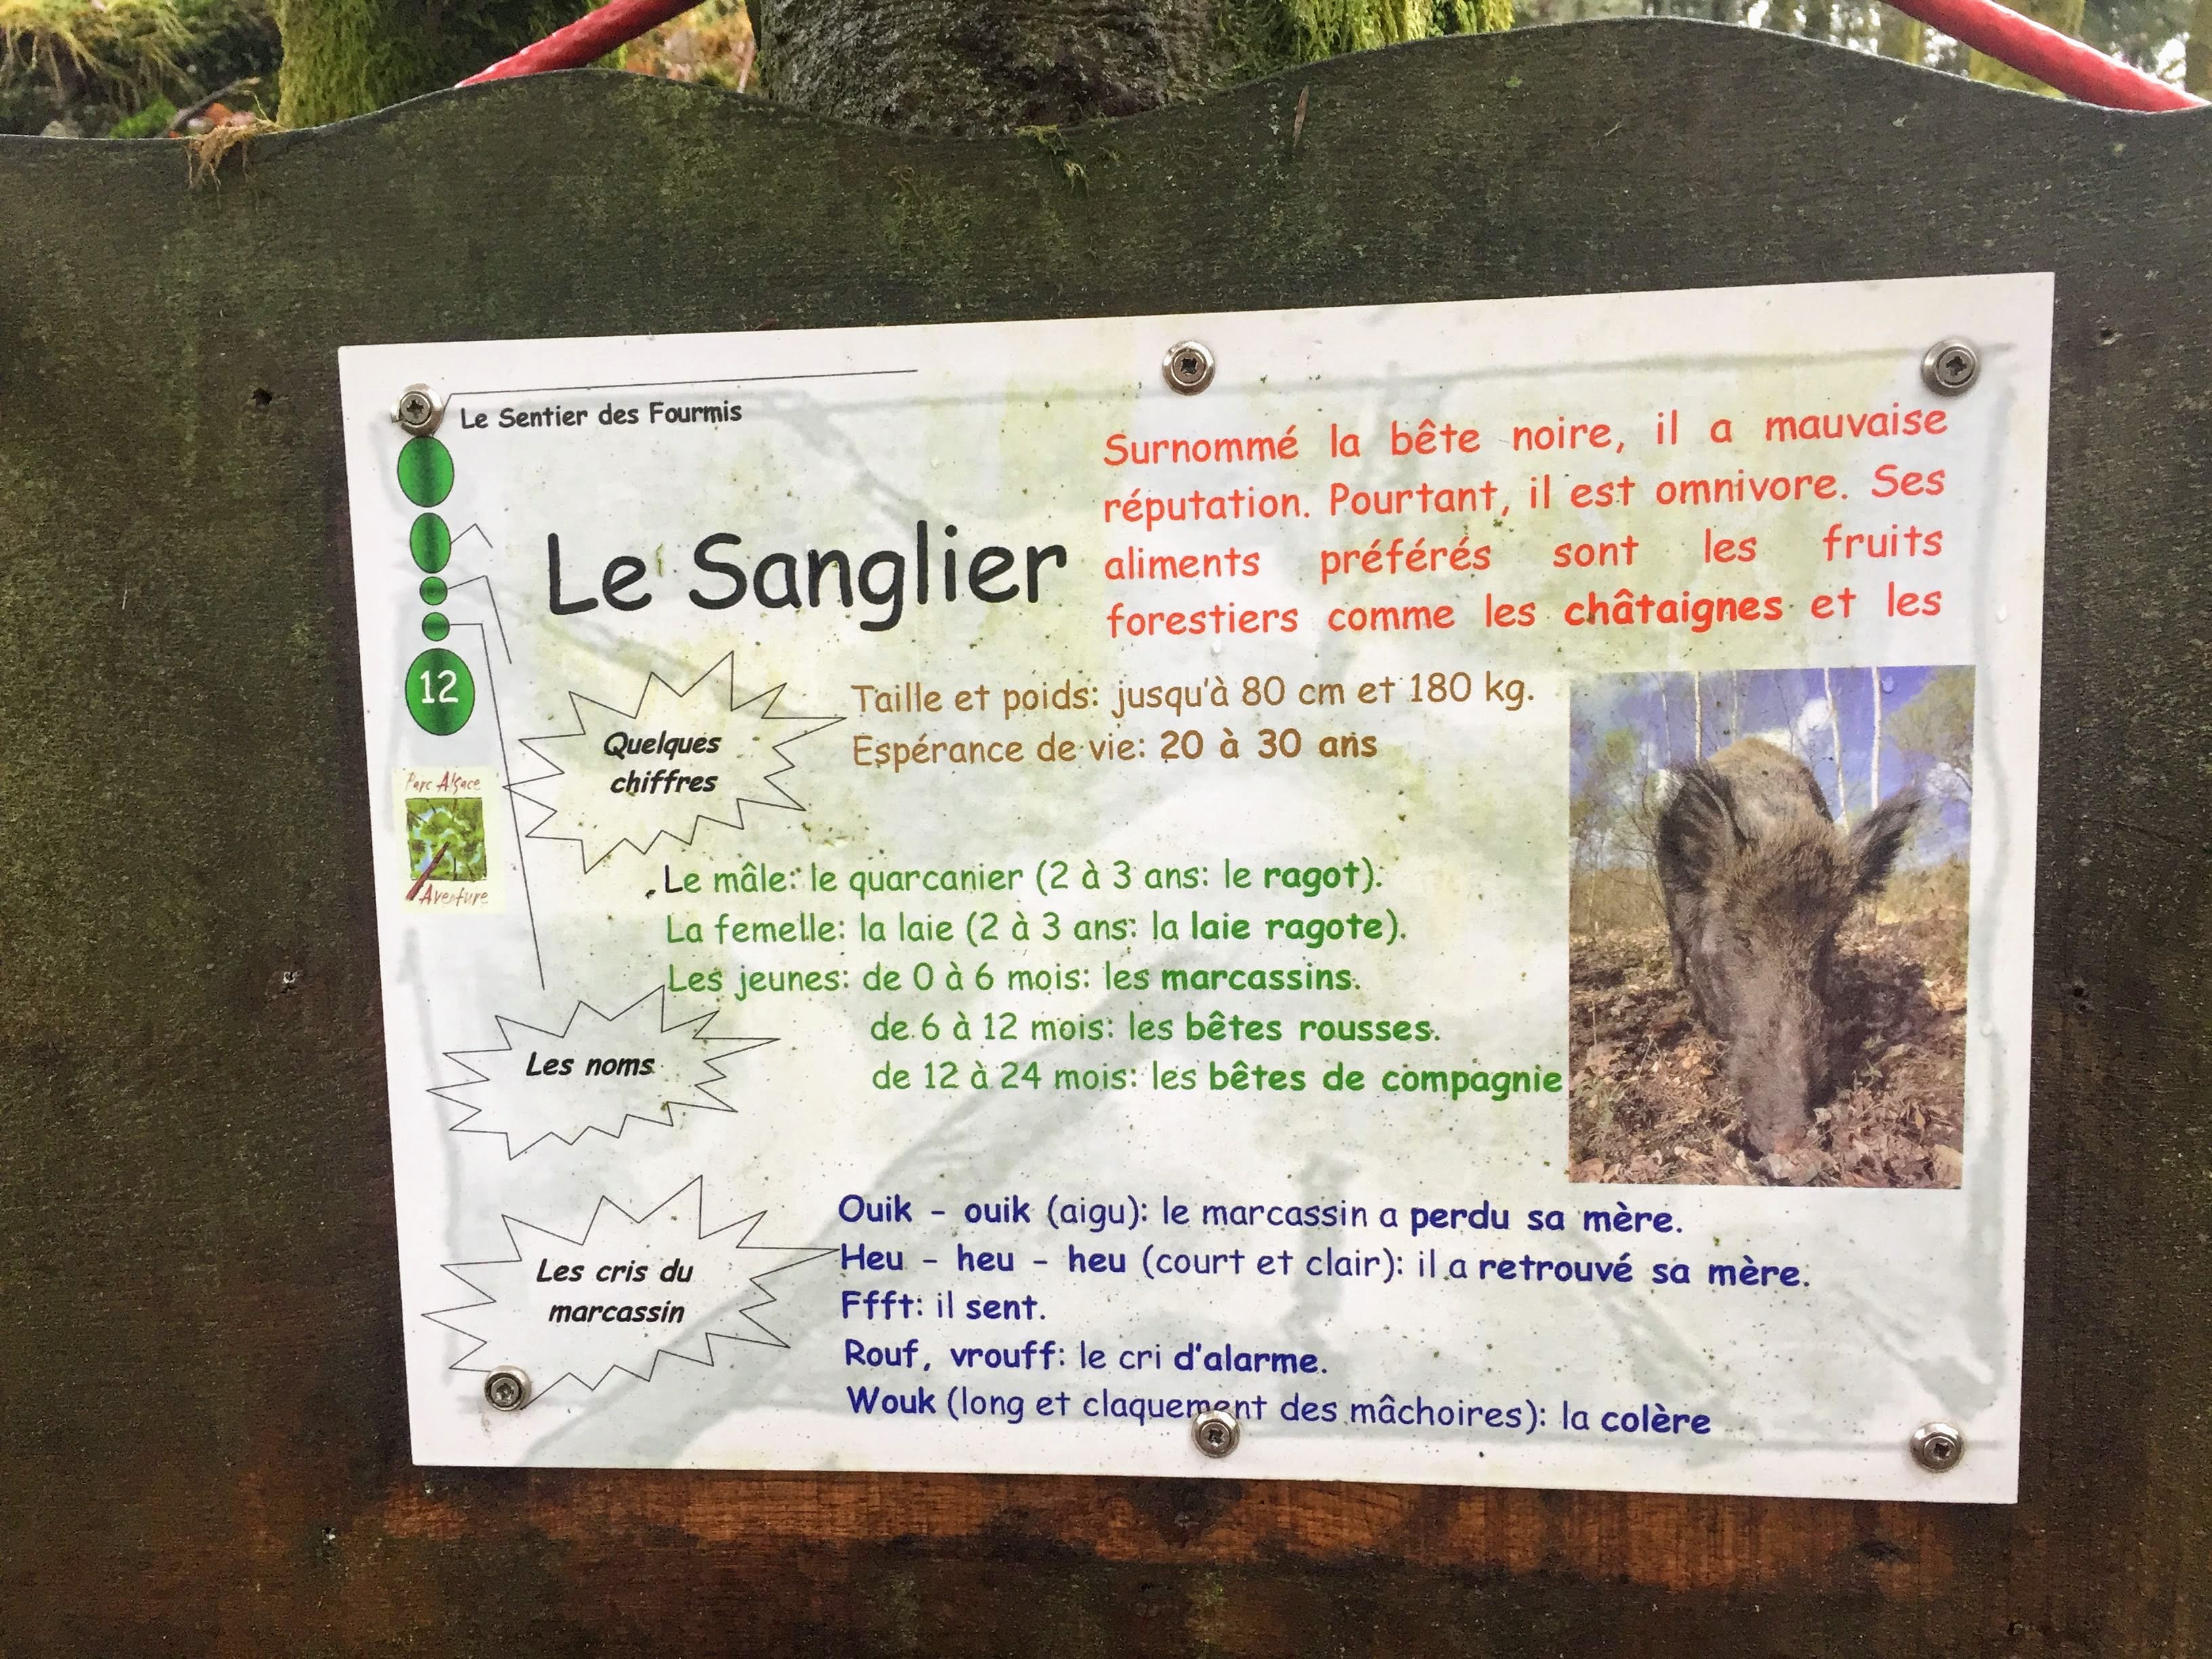 Le Sentier des Fourmis
Surnommé la bête noire, il a mauvaise
réputation. Pourtant, il est omnivore. Ses
aliments préférés sont les fruits
forestiers comme les châtaignes et les
Le Sanglier
12
Parc Alsace
Aventure
Quelques
chiffres
Taille et poids: jusqu'à 80 cm et 180 kg.
Espérance de vie: 20 à 30 ans
Les noms
Le mâle: le quarcanier (2 à 3 ans: le ragot).
La femelle: la laie (2 à 3 ans: la laie ragote).
Les jeunes: de 0 à 6 mois: les marcassins.
de 6 à 12 mois: les bêtes rousses.
de 12 à 24 mois: les bêtes de compagnie
Les cris du
marcassin
Ouik - ouik (aigu): le marcassin a perdu sa mère.
Heu - heu - heu (court et clair): il a retrouvé sa mère.
Ffft: il sent.
Rouf, vrouff: le cri d'alarme.
Wouk (long et claquement des mâchoires): la colère